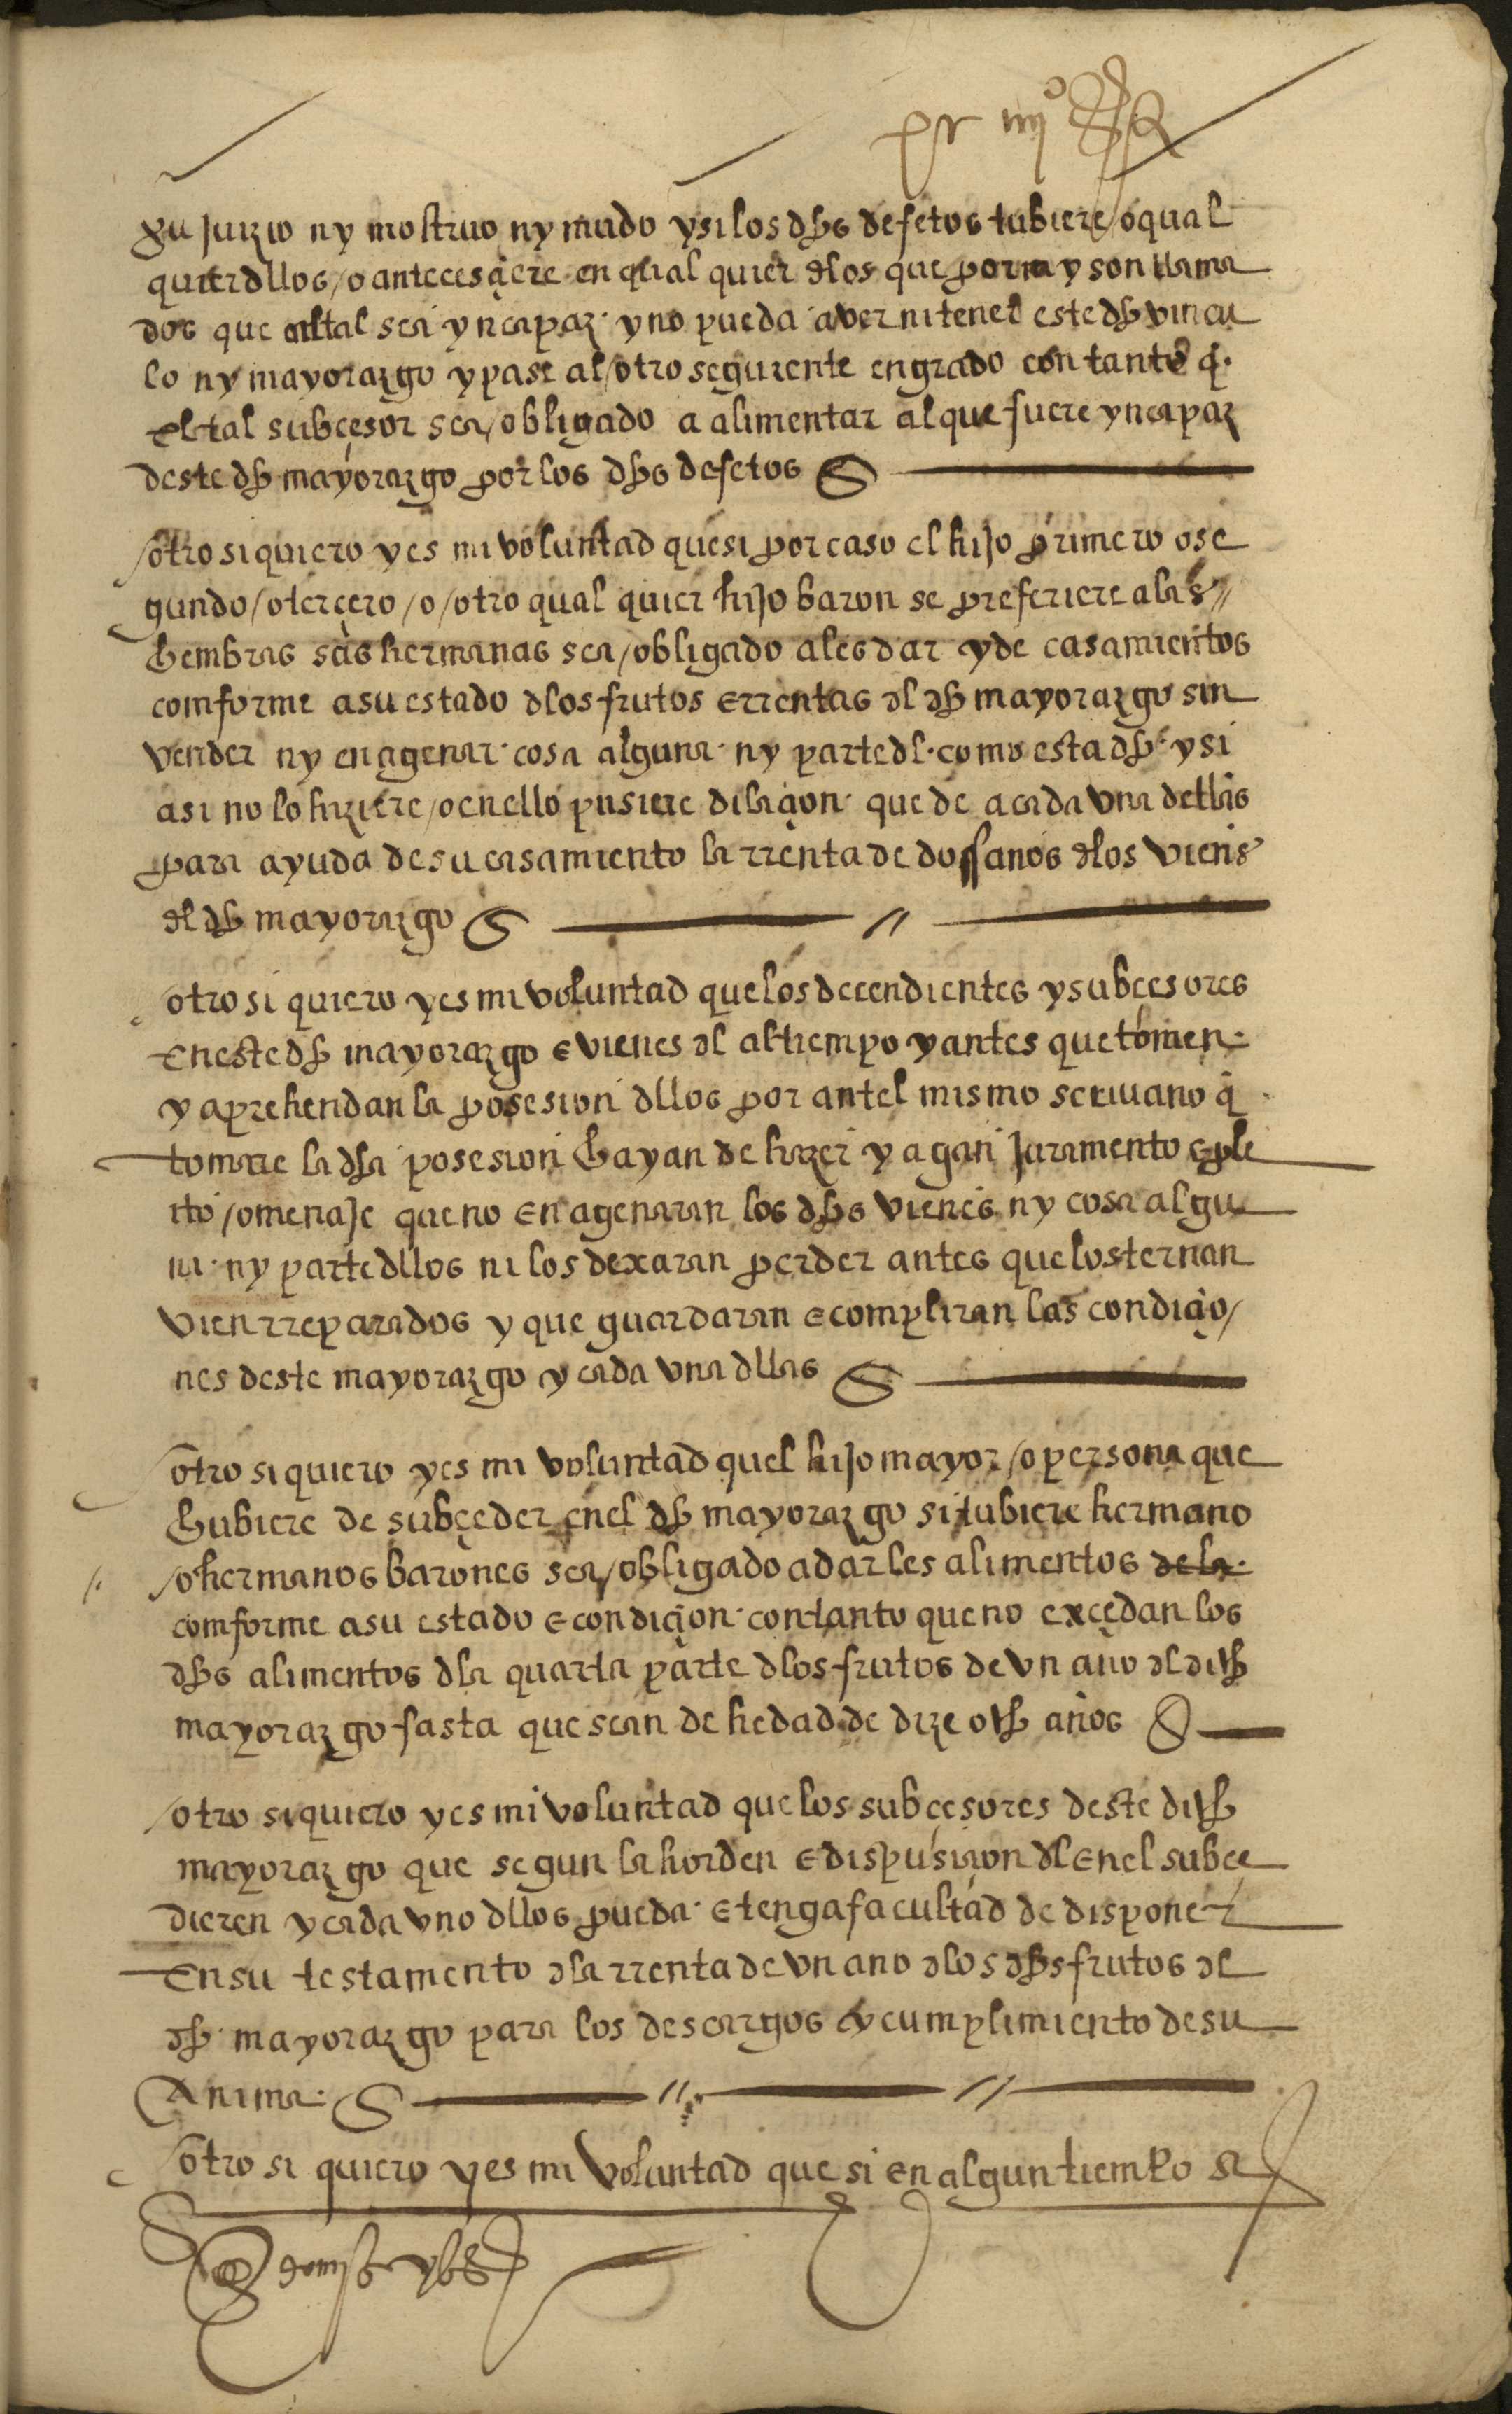 su juizio ny mostruo ny mudo y si los dhos defetos tubiere / o qual
quier dllos / o anteces çiere en qual quier dlos que por my son llama
dos que al tal sea yncapaz y no pueda aver ni tener este dho vincu
lo ny mayorazgo y pase al / otro seguiente en grado con tanto q̃.
el tal subçesor sea / obligado a alimentar al que fuere yncapaz
deste dho mayorazgo por los dhos defetos
/ otro si quiero y es mi voluntad que si por caso el hijo primero o se
gundo / o terçero / o / otro qual quier hijo baron se prefiriere a las //
hembras sus hermanas sea / obligado a les dar y de casamientos
comforme a su estado dlos frutos e rrentas dl dho mayorazgo sin
vender ny enagenar cosa alguna ny parte dl como esta dho y si
asi no lo hiziere / o en ello pusiere dilaçion que de a cada vna dellas
para ayuda de su casamiento la rrenta de dos anos dlos vienes
dl dho mayorazgo
otro si quiero y es mi voluntad que los decendientes y subçesores
en este dho mayorazgo e vienes dl al tiempo y antes que tomen
y aprehendan la posesion dllos por antel mismo scrivano q̃
tomare la dha posesion hayan de hazer y agan juramento e ple
ito / omenaje que no enagenaran los dhos vienes ny cosa algu
na ny parte dllos ni los dexaran perder antes que los ternan
vien rreparados y que guardaran e compliran las condiçio /
nes deste mayorazgo y cada vna dllas
otro si quiero y es mi voluntad quel hijo mayor / o persona que
hubiere de subçeder enel dho mayorazgo si tubiere hermano
/ o hermanos barones sea / obligado a darles alimentos de la
comforme a su estado e condiçion con tanto que no exçedan los
dhos alimentos dla quarta parte dlos frutos de vn ano dl dicho
mayorazgo fasta que sean de hedad de dize ocho años
/ otro si quiero y es mi voluntad que los subçesores deste dicho
mayorazgo que segun la horden e dispusiçion dl enel subçe
dieren y cada vno dllos pueda e tenga facultad de disponer
en su testamento dla rrenta de vn ano dlos dhos frutos dl
dho mayorazgo para los descargos y cumplimiento de su
anima
/ otro si quiero y es mi voluntad que si en algun tiempo se